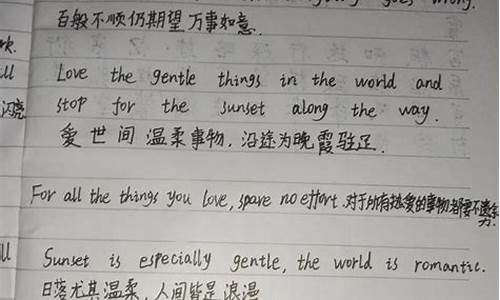 goes wrong.
百般不顺仍期望万事如意.
Love the gentle things in the world and
stop for the sunset along the way.
爱世间温柔事物，沿途为晚霞驻足.
For all the things you love, spare no effort.对于所有热爱的事物都要不遗余
力.
Sunset is especially gentle, the world is romantic.
日落尤其温柔，人间皆是浪漫